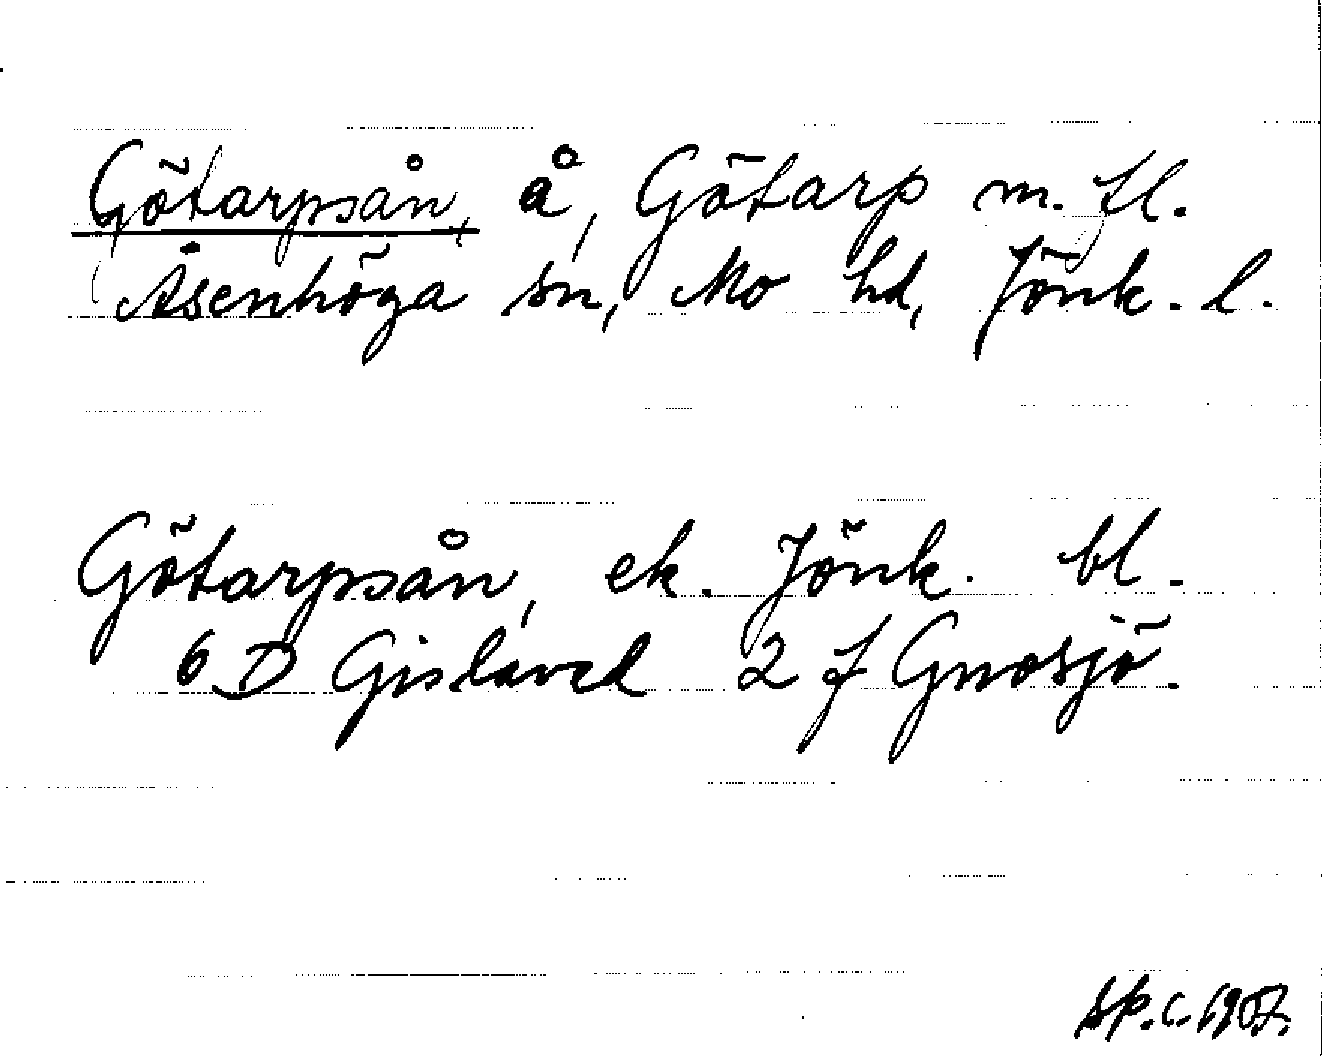 Götarpsån, å, Götarp m. fl.
Åsenhöga sn, Mo hd, Jönk. l.
Götarpsån, ek. Jönk. bl.
6 D Gislaved 2 f Gnosjö.